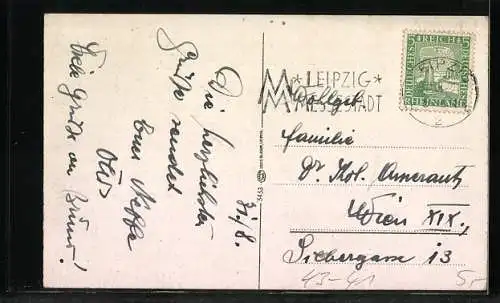 Viele Grüße an
Die herzlichsten
Grüße sendet
Euer Neffe
Otto
31./8.
5453
DEUTSCHES REICH
5 5
RHEINLAND
LEIPZIG
* LEIPZIG *
MESSESTADT
Wohlgeb.
Familie
Dr. Kol.
Wien XIX.,
Siebergasse 13
43-41
5,-